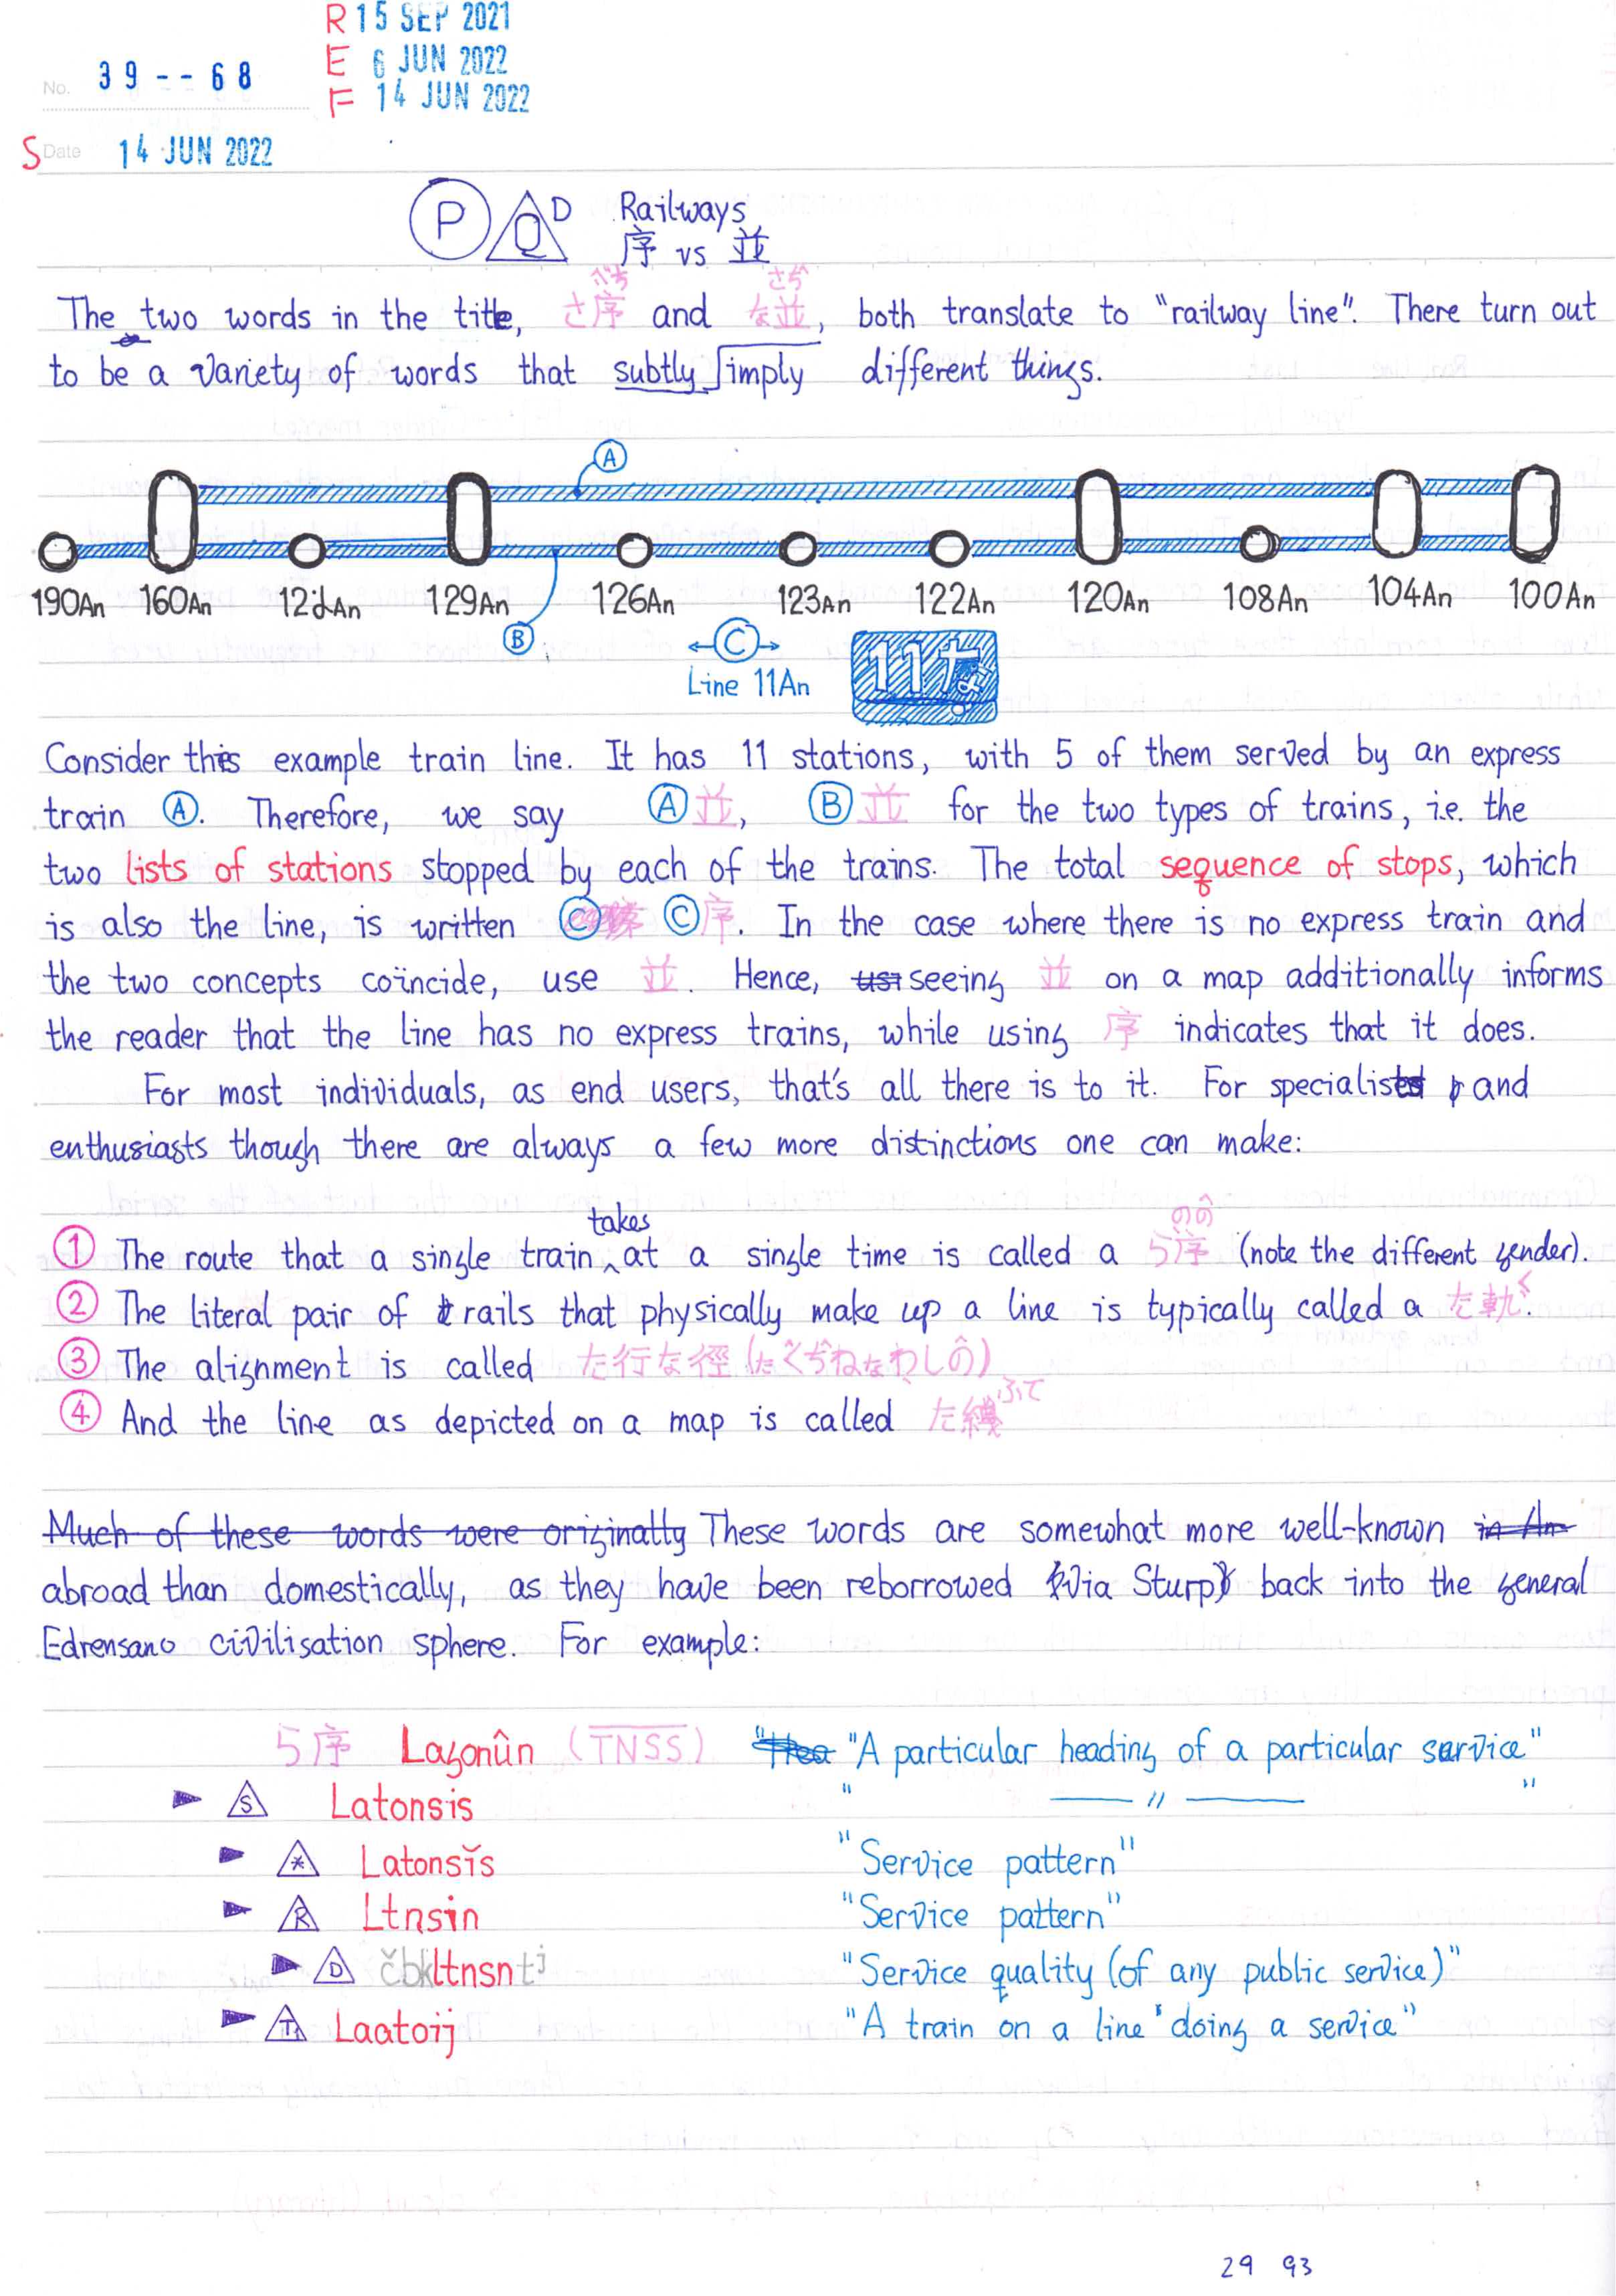 R 15 SEP 2021
E 6 JUN 2022
F 14 JUN 2022
No. 39--68
S Date 14 JUN 2022
P Q D Railways
序 vs 並
The two words in the title, さ序 and な並, both translate to "railway line". There turn out
to be a variety of words that subtly imply different things.
A
190An 160An 12dAn 129An 126An 123An 122An 120An 108An 104An 100An
B
C
Line 11An
11
Consider this example train line. It has 11 stations, with 5 of them served by an express
train A. Therefore, we say A並, B並 for the two types of trains, i.e. the
two lists of stations stopped by each of the trains. The total sequence of stops, which
is also the line, is written C C序. In the case where there is no express train and
the two concepts coïncide, use 並. Hence, seeing 並 on a map additionally informs
the reader that the line has no express trains, while using 序 indicates that it does.
For most individuals, as end users, that's all there is to it. For specialists and
enthusiasts though there are always a few more distinctions one can make:
① The route that a single train takes at a single time is called a ら序 (note the different gender).
② The literal pair of rails that physically make up a line is typically called a た軌.
③ The alignment is called た行な徑
④ And the line as depicted on a map is called た
Much of these words were originally These words are somewhat more well-known in An
abroad than domestically, as they have been reborrowed via Sturp back into the general
Edrensano civilisation sphere. For example:
ら序 Lagonûn (TNSS) "A particular heading of a particular service"
S Latonsis " 〃 "
* Latonsĭs "Service pattern"
R Ltnsin "Service pattern"
D čbkltnsntj "Service quality (of any public service)"
T Laatoij "A train on a line doing a service"
29 93